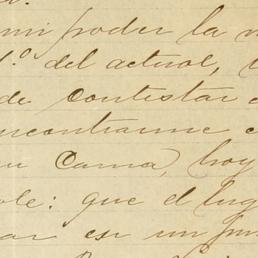 mi poder la
1.º del actual,
de contestar
encontrarme
cama, hoy
ble: que el lug
ar es un pun